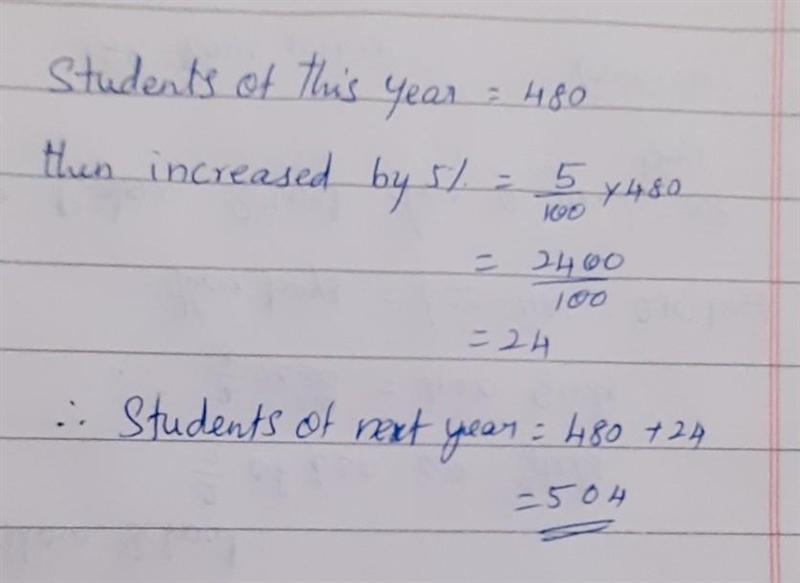 Students of this year = 480
then increased by 5% = 5/100 × 480
= 2400/100
= 24
∴ Students of next year = 480 + 24
= 504